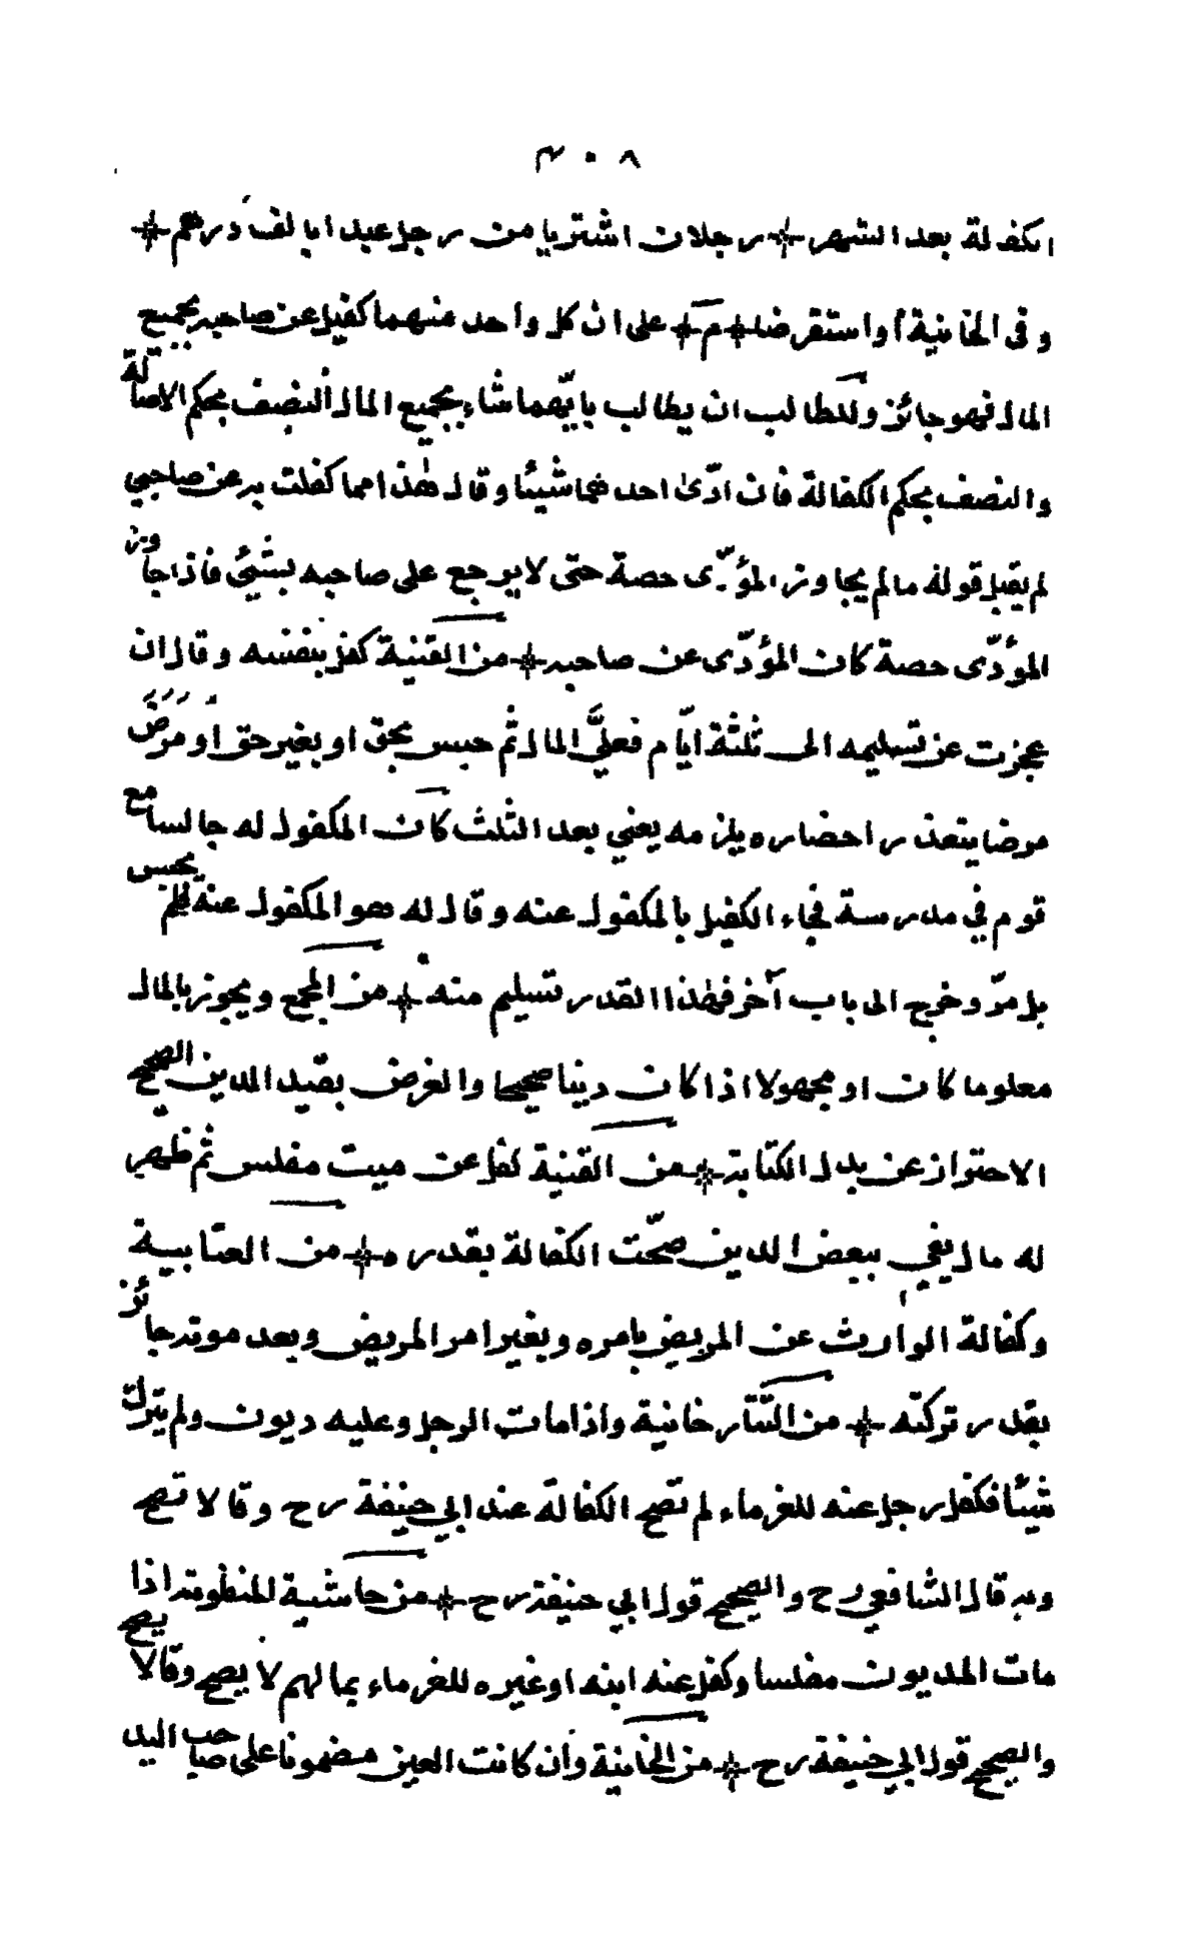 ٣٠٨
الكفالة بعد الشهر ⁜ رجلان اشتريا من رجل عبدا بالف درهم ⁜
وفي الخانية او استقرضا ⁜ م ⁜ على ان كل واحد منهما كفيل عن صاحبه بجميع
المال فهو جائز وللطالب ان يطالب بايّهما شاء بجميع المال النصف بحكم الاصالة
والنصف بحكم الكفالة فان ادّى احدهما شيئا وقال هذا مما كفلت به عن صاحبي
لم يقبل قوله مالم يجاوز المؤدّى حصة حتى لا يرجع على صاحبه بشيئ فاذا جاوز
المؤدّى حصة كان المؤدّى عن صاحبه ⁜ من القنية كفل بنفسه وقال ان
عجزت عن تسليمه الى ثلثة ايّام فعليّ المال ثم حبس بحق او بغير حق او مرض
مرضا يتعذر احضاره يلزمه يعني بعد الثلث كان المكفول له جالسا مع
قوم في مدرسة فجاء الكفيل بالمكفول عنه وقال له هو المكفول عنه فلم يجلس
بل مرّ وخرج الى باب آخر فهذا القدر تسليم منه ⁜ من المجمع ويجوز بالمال
معلوما كان او مجهولا اذا كان دينا صحيحا والغرض بقيد الدين الصحيح
الاحتراز عن بدل الكتابة ⁜ من القنية كفل عن ميت مفلس ثم ظهر
له مال يفي ببعض الدين صحّت الكفالة بقدره ⁜ من العتابية
وكفالة الوارث عن المريض بامره وبغير امر المريض وبعد موته جائز
بقدر تركته ⁜ من التتارخانية واذا مات الرجل وعليه ديون ولم يترك
شيئا فكفل رجل عنه للغرماء لم تصح الكفالة عند ابي حنيفة رح وقالا تصح
وبه قال الشافعي رح والصحيح قول ابي حنيفة رح ⁜ من حاشية المنظومة اذا
مات المديون مفلسا وكفل عنه ابنه او غيره للغرماء بمالهم لا يصح وقالا يصح
والصحيح قول ابي حنيفة رح ⁜ من الخانية وان كانت العين مضمونا على صاحب اليد